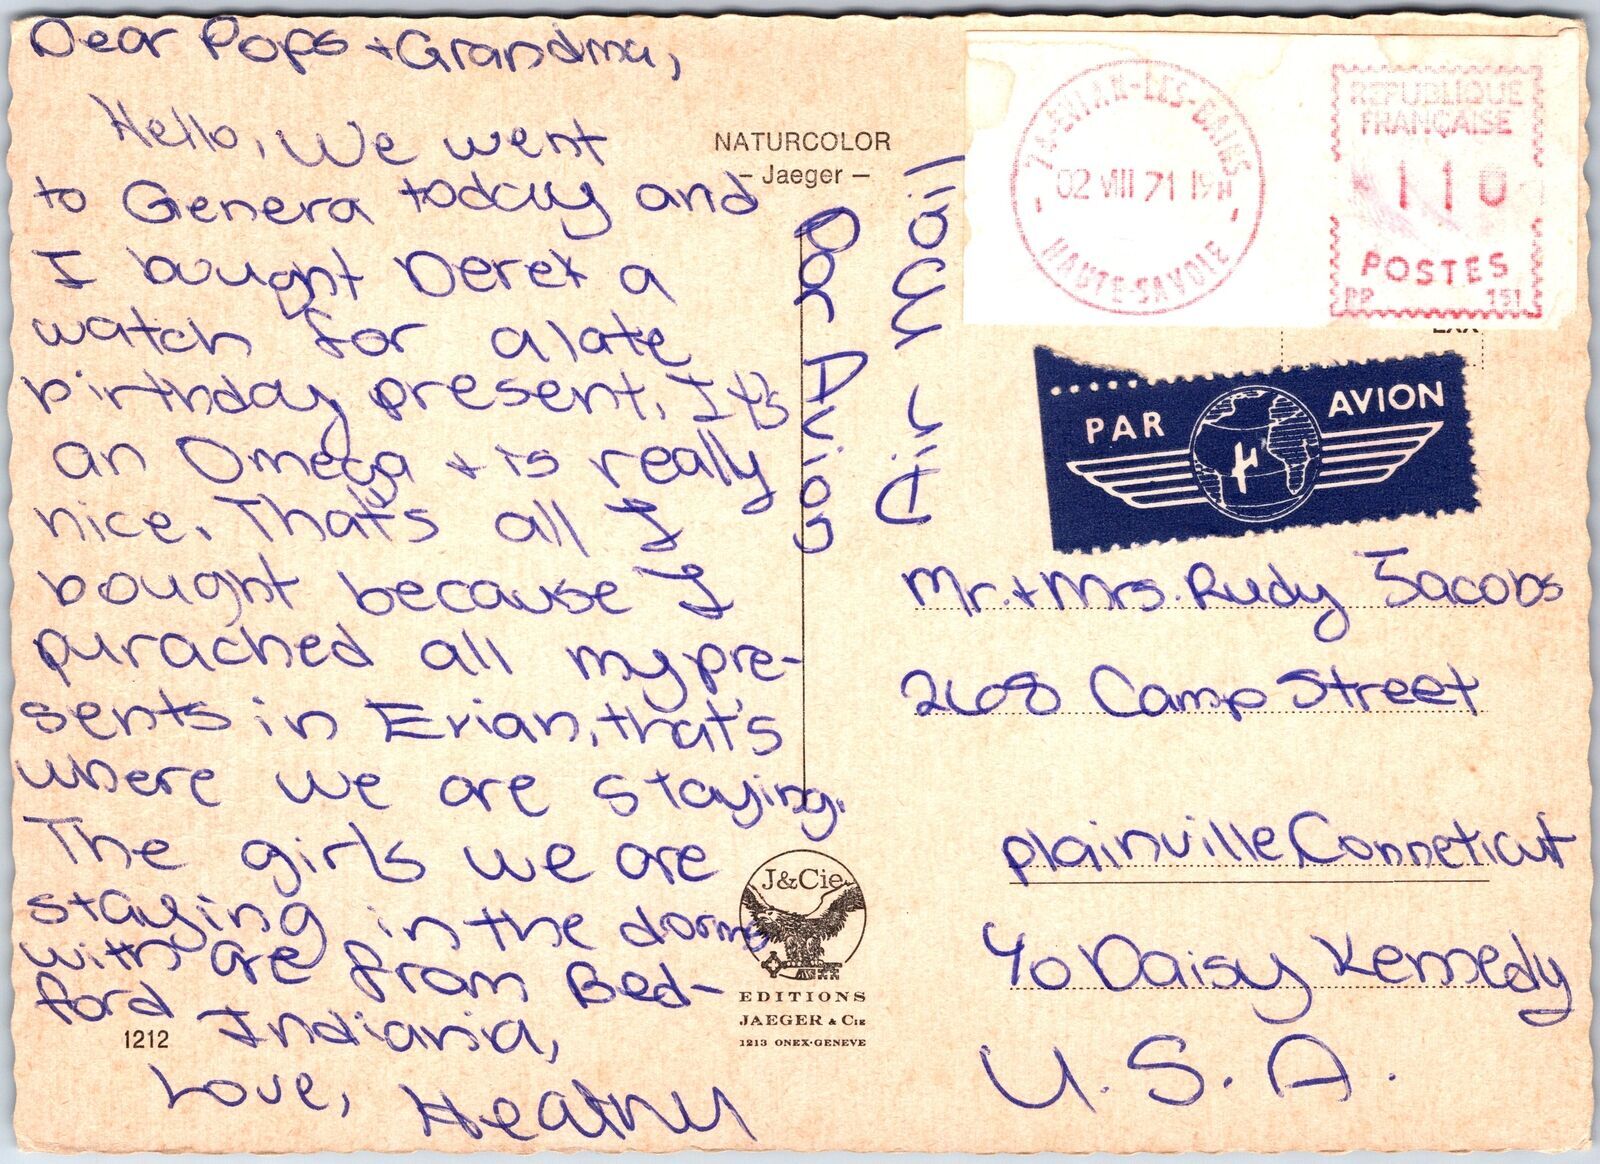 Dear Pops + Grandma,
Hello, We went
to Genera today and
I bought Derek a
watch for a late
birthday present. It's
an Omega + is really
nice. That's all I
bought because I
purached all my pre-
sents in Evian, that's
where we are staying.
The girls we are
staying in the dorms
with are from Bed-
ford Indiania,
Love, Heather
1212
NATURCOLOR
- Jaeger -
J&Cie
EDITIONS
JAEGER & Cie
1213 ONEX-GENEVE
74-EVIAN-LES-BAINS
02 VIII 71 19H
HAUTE-SAVOIE
REPUBLIQUE
FRANÇAISE
110
POSTES
PP 151
PAR AVION
Mr. + Mrs. Rudy Jacobs
268 Camp Street
plainville, Conneticut
℅ Daisy Kennedy
U.S.A.